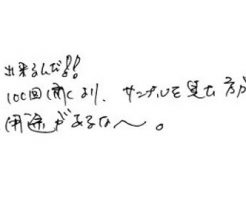 出来るんだ!!
100回聞くより、サンプルを見た方が
用途があるな〜。